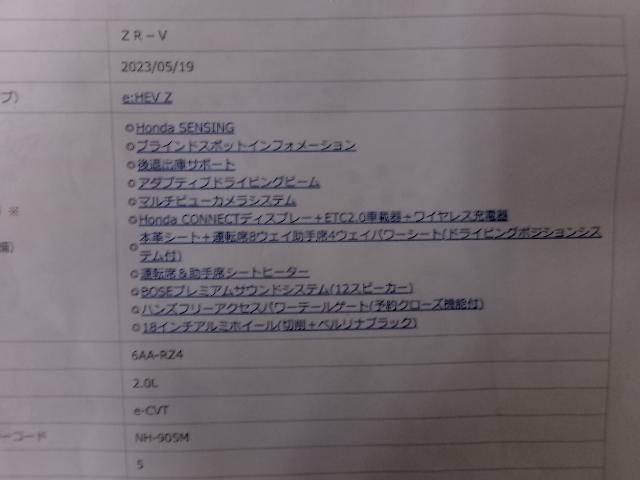 ZR-V
2023/05/19
プ)
e:HEV Z
Honda SENSING
ブラインドスポットインフォメーション
後退出庫サポート
アダプティブドライビングビーム
マルチビューカメラシステム
※
Honda CONNECTディスプレー+ETC2.0車載器+ワイヤレス充電器
本革シート+運転席8ウェイ助手席4ウェイパワーシート(ドライビングポジションシス
テム付)
運転席&助手席シートヒーター
BOSEプレミアムサウンドシステム(12スピーカー)
ハンズフリーアクセスパワーテールゲート(予約クローズ機能付)
18インチアルミホイール(切削+ベルリナブラック)
6AA-RZ4
2.0L
e-CVT
ーコード
NH-905M
5